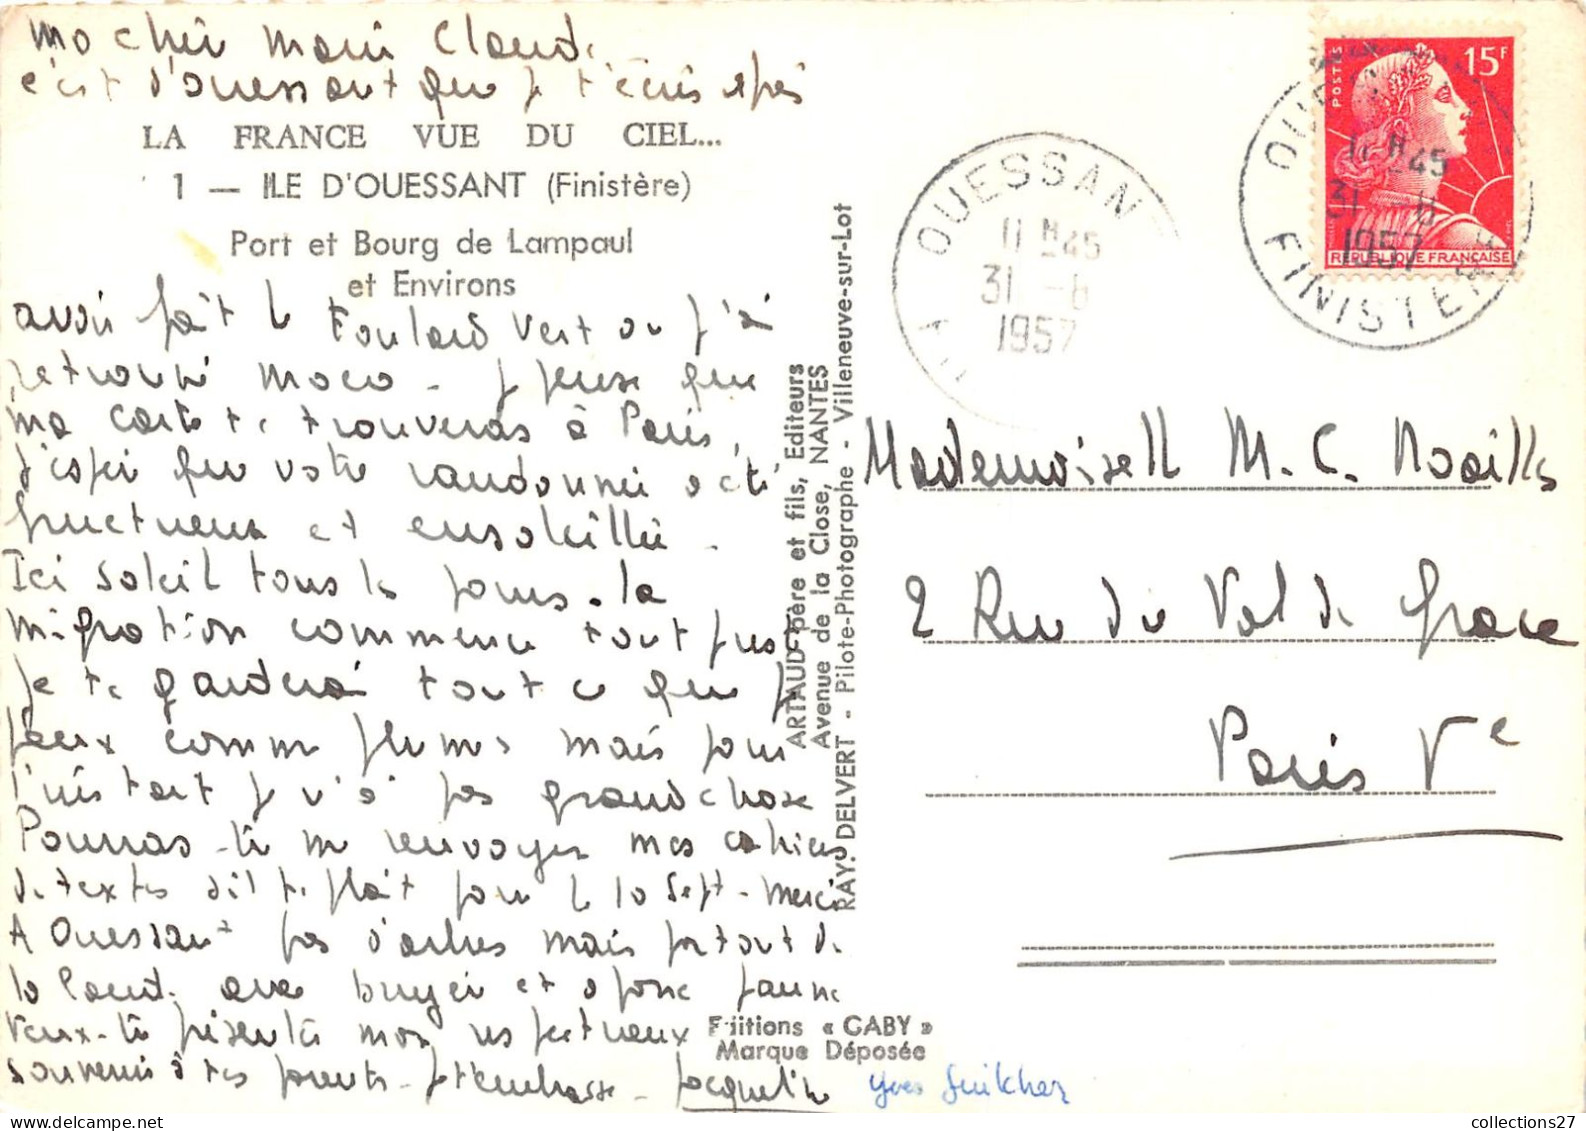 Ma chère Marie Claude
c'est d'Ouessant que je t'écris après
LA FRANCE VUE DU CIEL...
1 — ILE D'OUESSANT (Finistère)
Port et Bourg de Lampaul
et Environs
avoir fait le Foulard Vert où j'ai
retrouvé - je pense que
ma carte te trouveras à Paris,
J'espère que votre randonnée a été
fructueuse et ensoleillée -
Ici soleil tous les jours - la
migration commence tout juste
je te garderai tout ce que je
peux comme plumes mais pour
l'instant je n'ai pas grand chose
Pourras-tu me renvoyer mes cahiers
de textes s'il te plaît pour le 10 Sept - Merci
A Ouessant pas d'arbres mais partout de
la lande avec bruyère et ajonc jaune
Veux-tu présenter mon respectueux
souvenir à tes parents - je t'embrasse - Jacqueline
Yves Guilcher
ARTAUD père et fils, Editeurs
Avenue de la Close, NANTES
RAY. DELVERT - Pilote-Photographe - Villeneuve-sur-Lot
Editions « GABY »
Marque Déposée
OUESSANT
11 H 45
31 -8
1957
POSTES
15F
REPUBLIQUE FRANÇAISE
11 H 45
31 -8
1957
FINISTERE
Mademoiselle M. C. Noailles
2 Rue du Val de Grace
Paris Ve
collections27